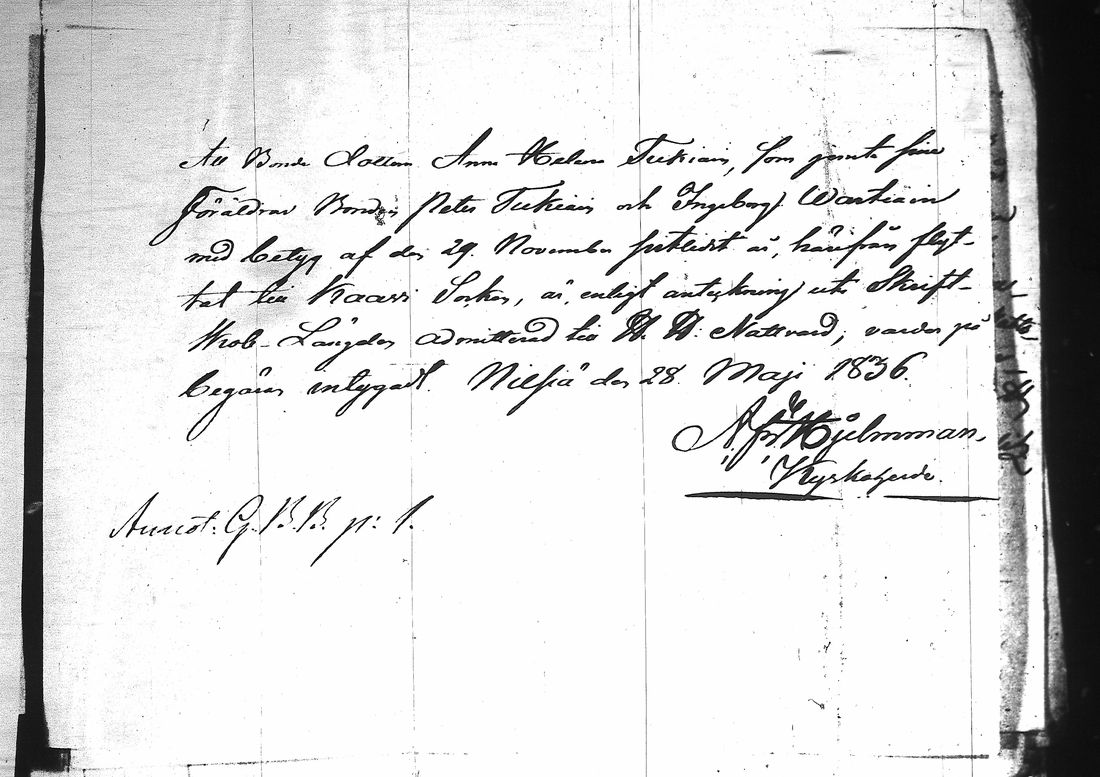 Att Bonde Dottren Anna Helena Tukiain, som jemte sine
Föräldrar Bonden Peter Tukiain och Ingeborg Wartiain
med betyg af den 29. November sistledit år, härifrån flyt-
tat till Kaavi Socken, är, enligt anteckning uti Skrift-
skols-Längden admitterad till H. H. Nattvard, varder på
begäran intygadt. Nilsiä den 28. Maji 1836.
Hjelmman.
Kyrkoherde.
Annot: G. B. B. p: 1.